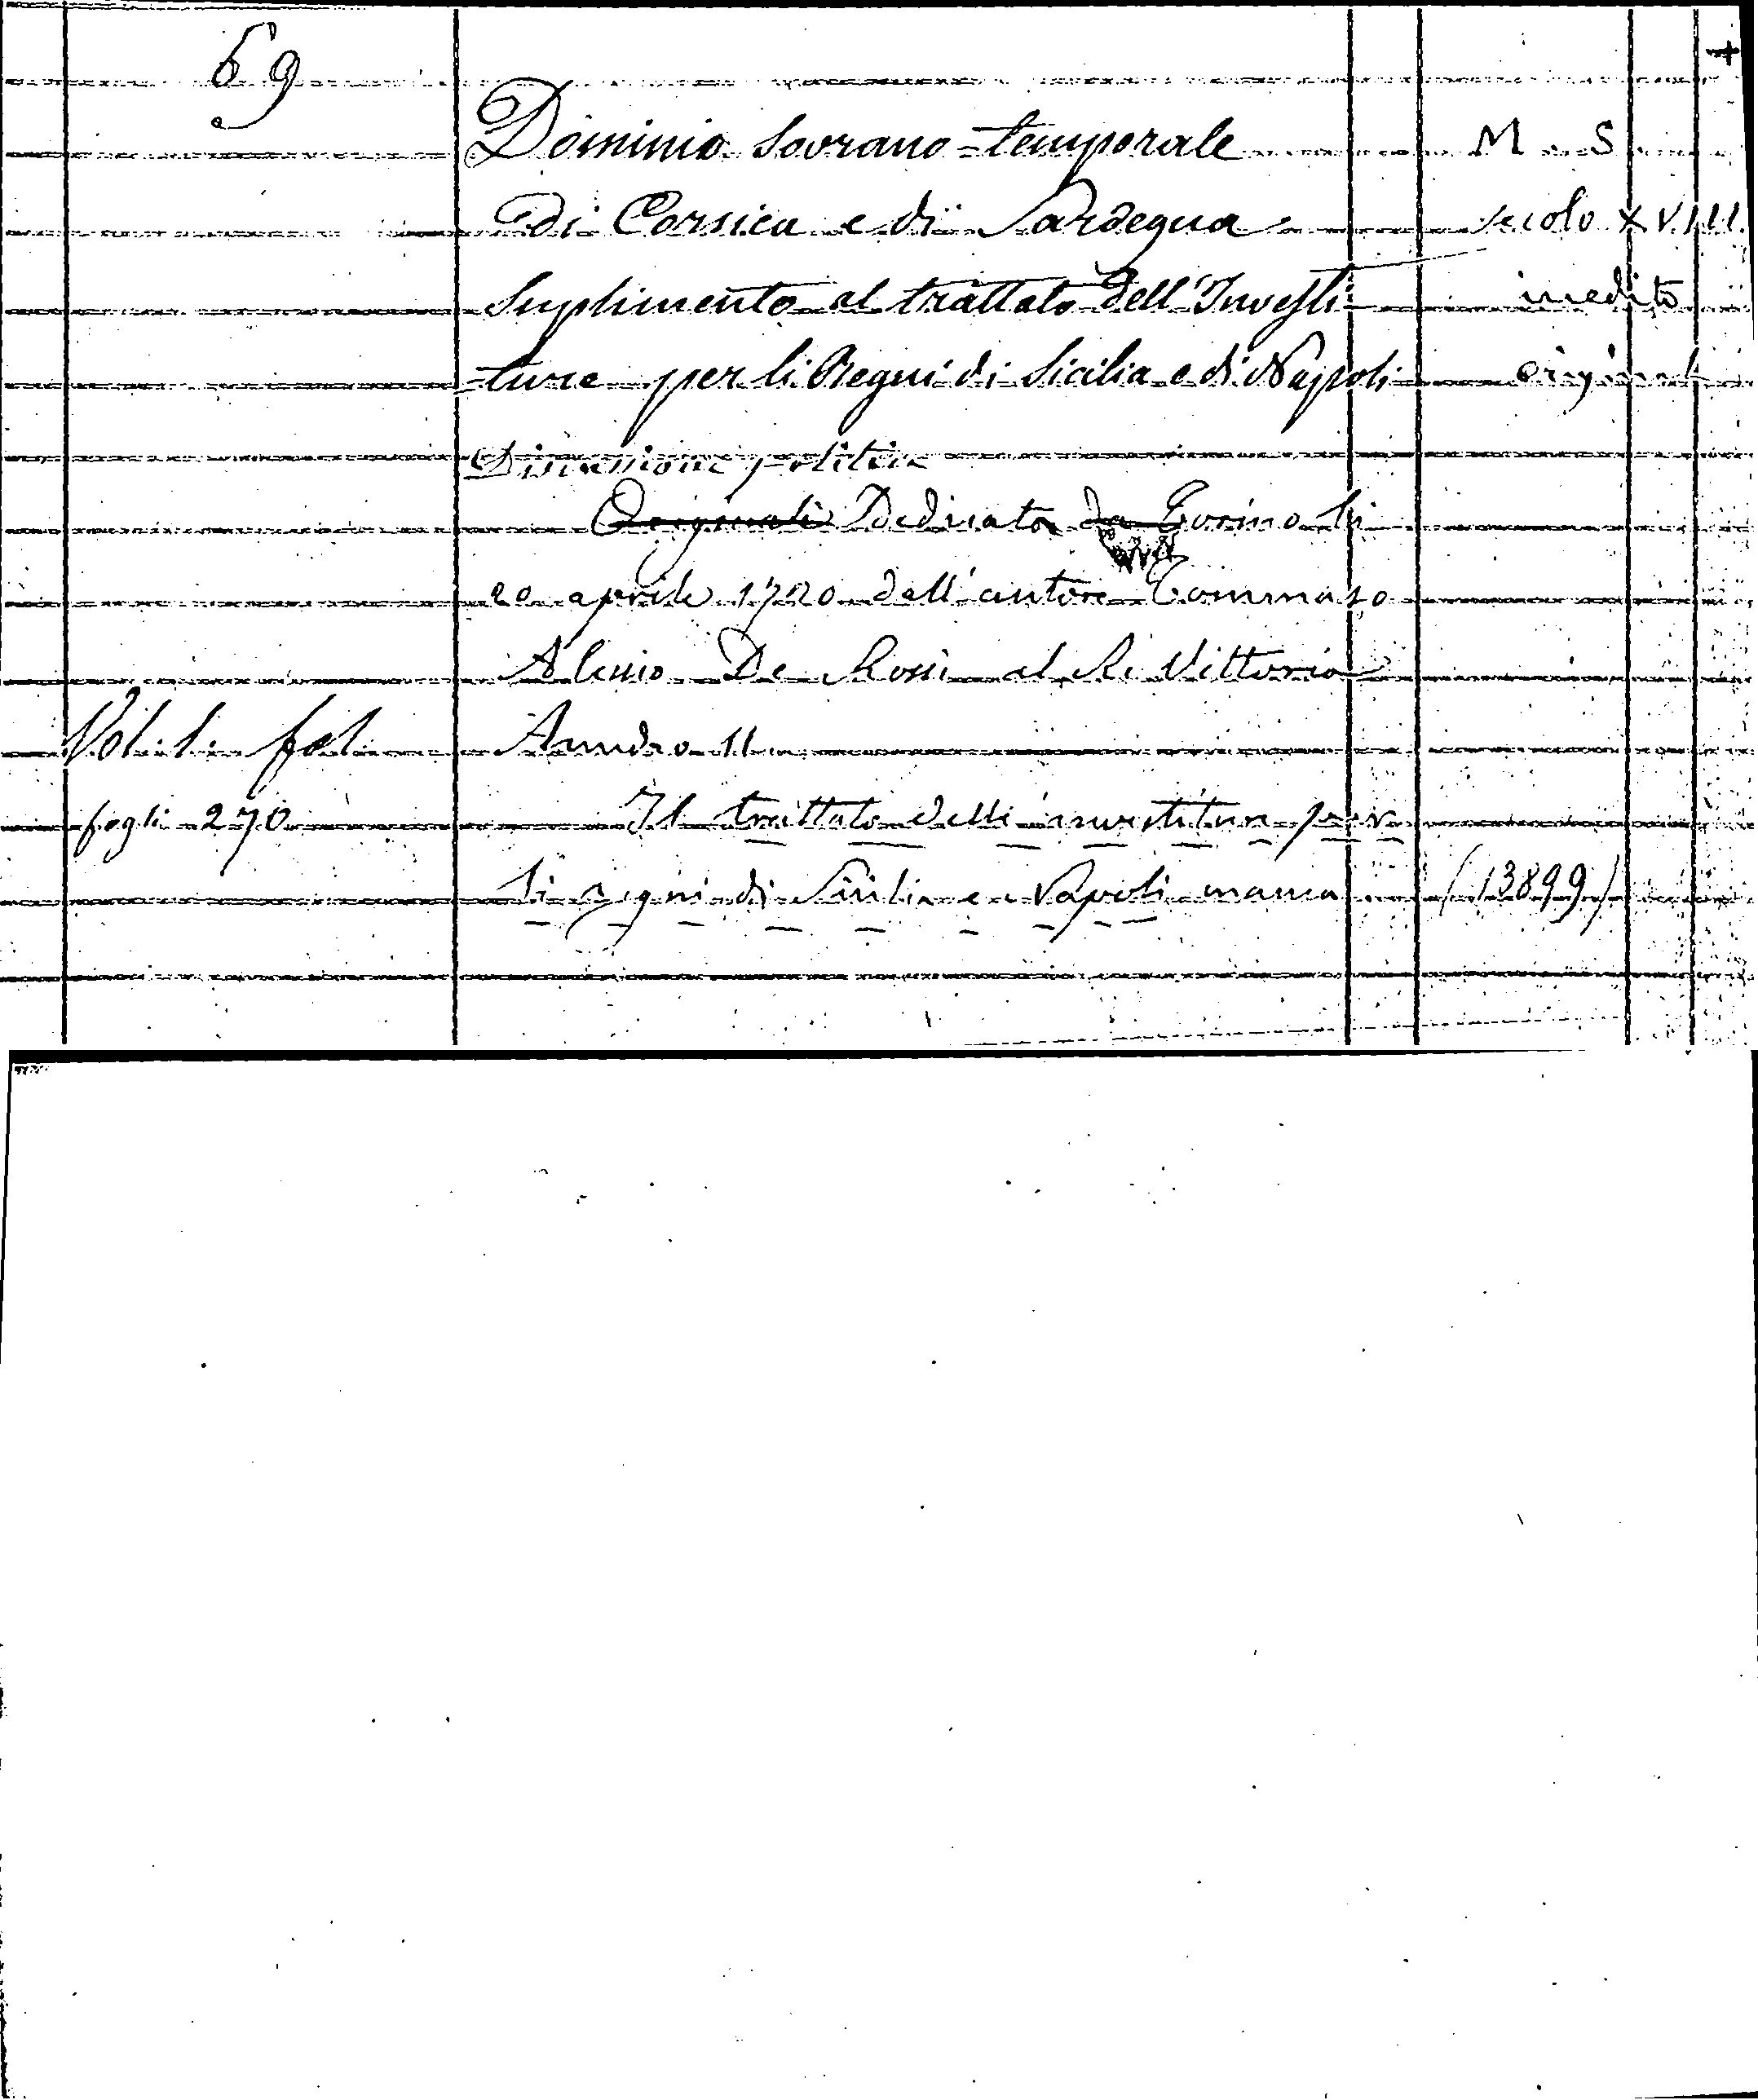 69
Dominio Sovrano-temporale M. S.
di Corsica e di Sardegna secolo XVIII.
Suplimento al trattato dell'Investi- inedito
ture per li Regni di Sicilia e di Napoli originale
Discussione politica
Originale Dedicata da Torino li
20 aprile 1720 dell'autore Tommaso
Alessio De Rossi al Re Vittorio
Vol. 1. fol. Amedeo II
fogli 270 Il trattato delle investiture per
li regni di Sicilia e Napoli manca (13899)